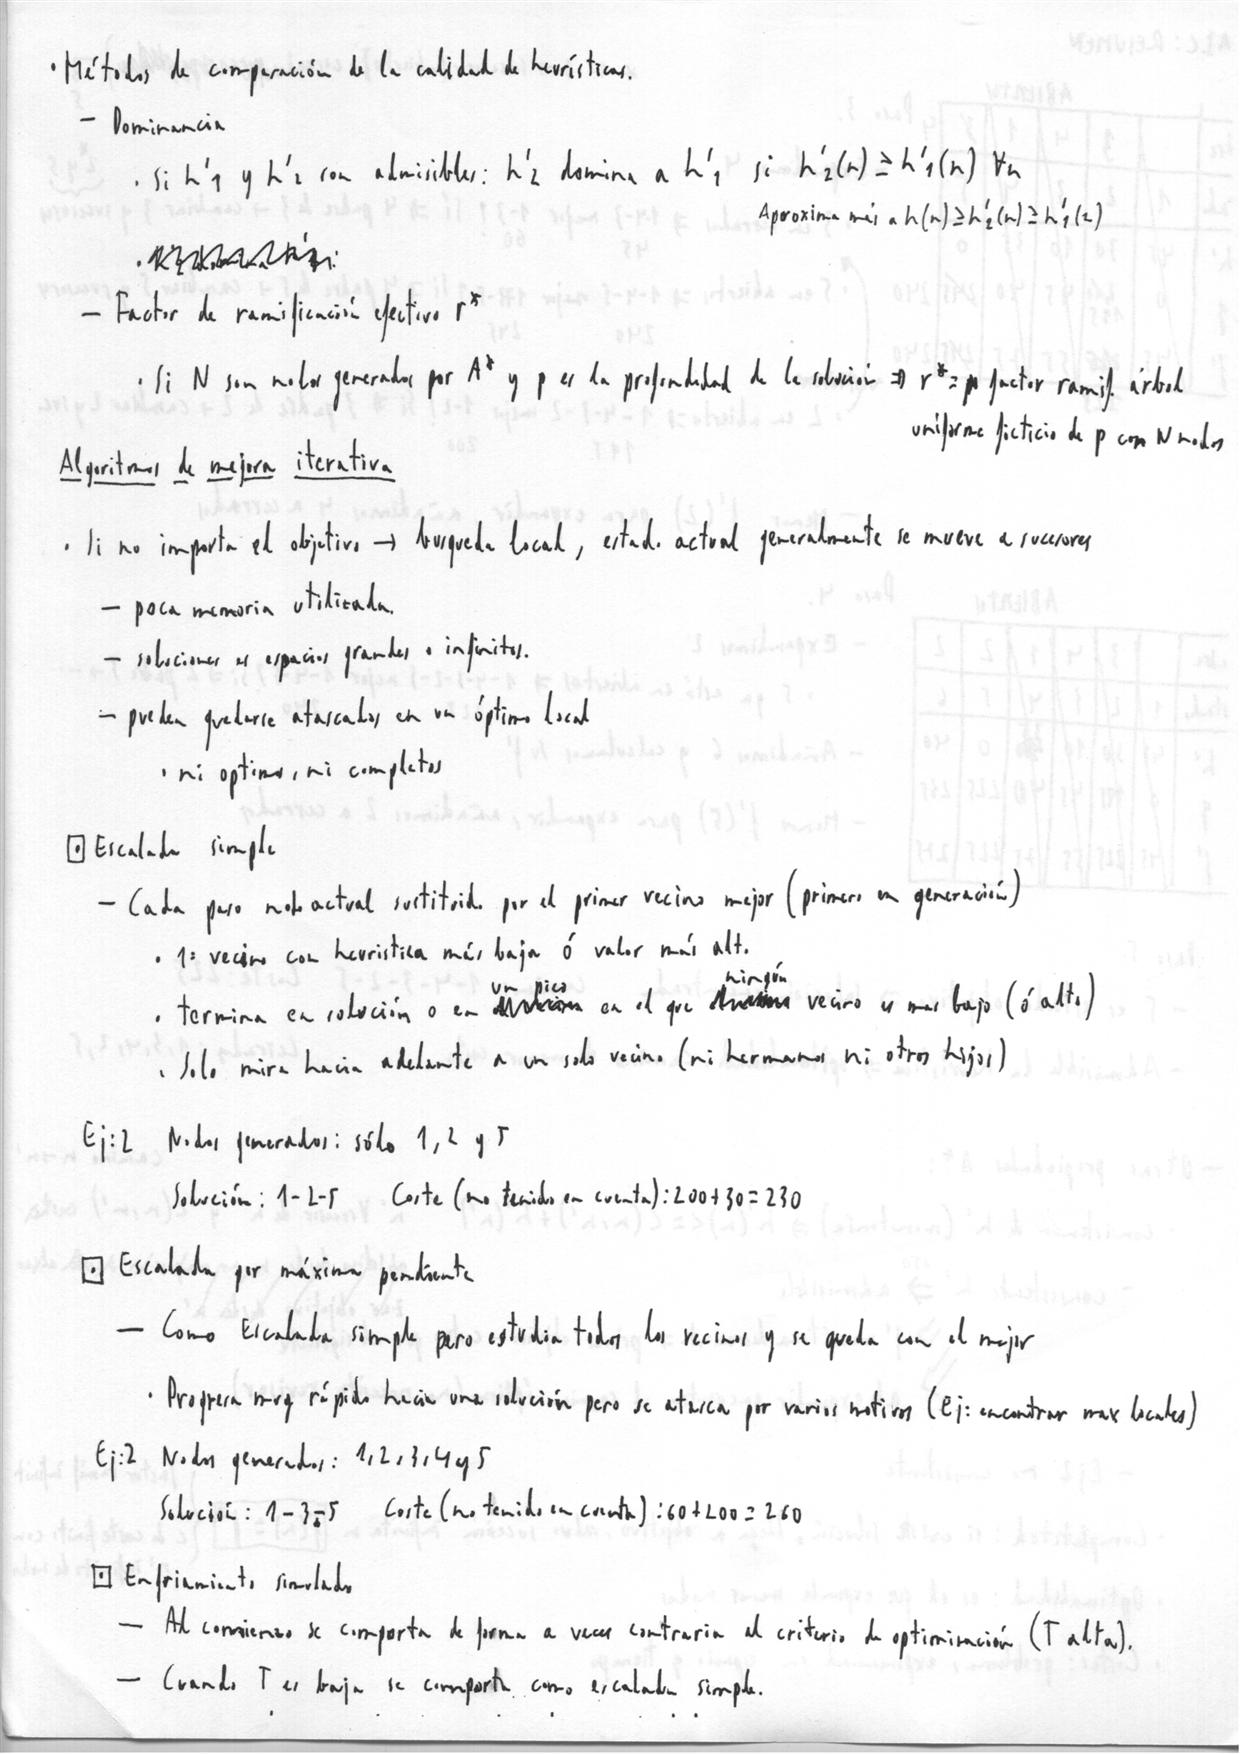 · Métodos de comparación de la calidad de heurísticas.
– Dominancia
· Si h'1 y h'2 son admisibles: h'2 domina a h'1 si h'2(n) ≥ h'1(n) ∀n
Aproxima más a h(n) ≥ h'2(n) ≥ h'1(n)
– Factor de ramificación efectivo r*
· Si N son nodos generados por A* y p es la profundidad de la solución ⇒ r* = factor ramif. árbol
uniforme ficticio de p con N nodos
Algoritmos de mejora iterativa
· Si no importa el objetivo → busqueda local, estado actual generalmente se mueve a sucesores
– poca memoria utilizada.
– soluciones es espacios grandes o infinitos.
– pueden quedarse atascados en un óptimo local
· ni optimos, ni completos
⊡ Escalada simple
– Cada paso nodo actual sustituido por el primer vecino mejor (primero en generación)
· 1º vecino con heuristica más baja ó valor más alto.
· termina en solución o en un pico en el que ningún vecino es mas bajo (ó alto)
· Solo mira hacia adelante a un solo vecino (ni hermanos ni otros hijos)
Ej:2 Nodos generados: sólo 1, 2 y 5
Solución: 1-2-5 Coste (no tenido en cuenta): 200+30=230
⊡ Escalada por máxima pendiente
– Como Escalada simple pero estudia todos los vecinos y se queda con el mejor
· Progresa muy rápido hacia una solución pero se atasca por varios motivos (Ej: encontrar max locales)
Ej:2 Nodos generados: 1, 2, 3, 4 y 5
Solución: 1-3-5 Coste (no tenido en cuenta): 60+200=260
⊡ Enfriamiento simulado
– Al comienzo se comporta de forma a veces contraria al criterio de optimización (T alta).
– Cuando T es baja se comporta como escalada simple.